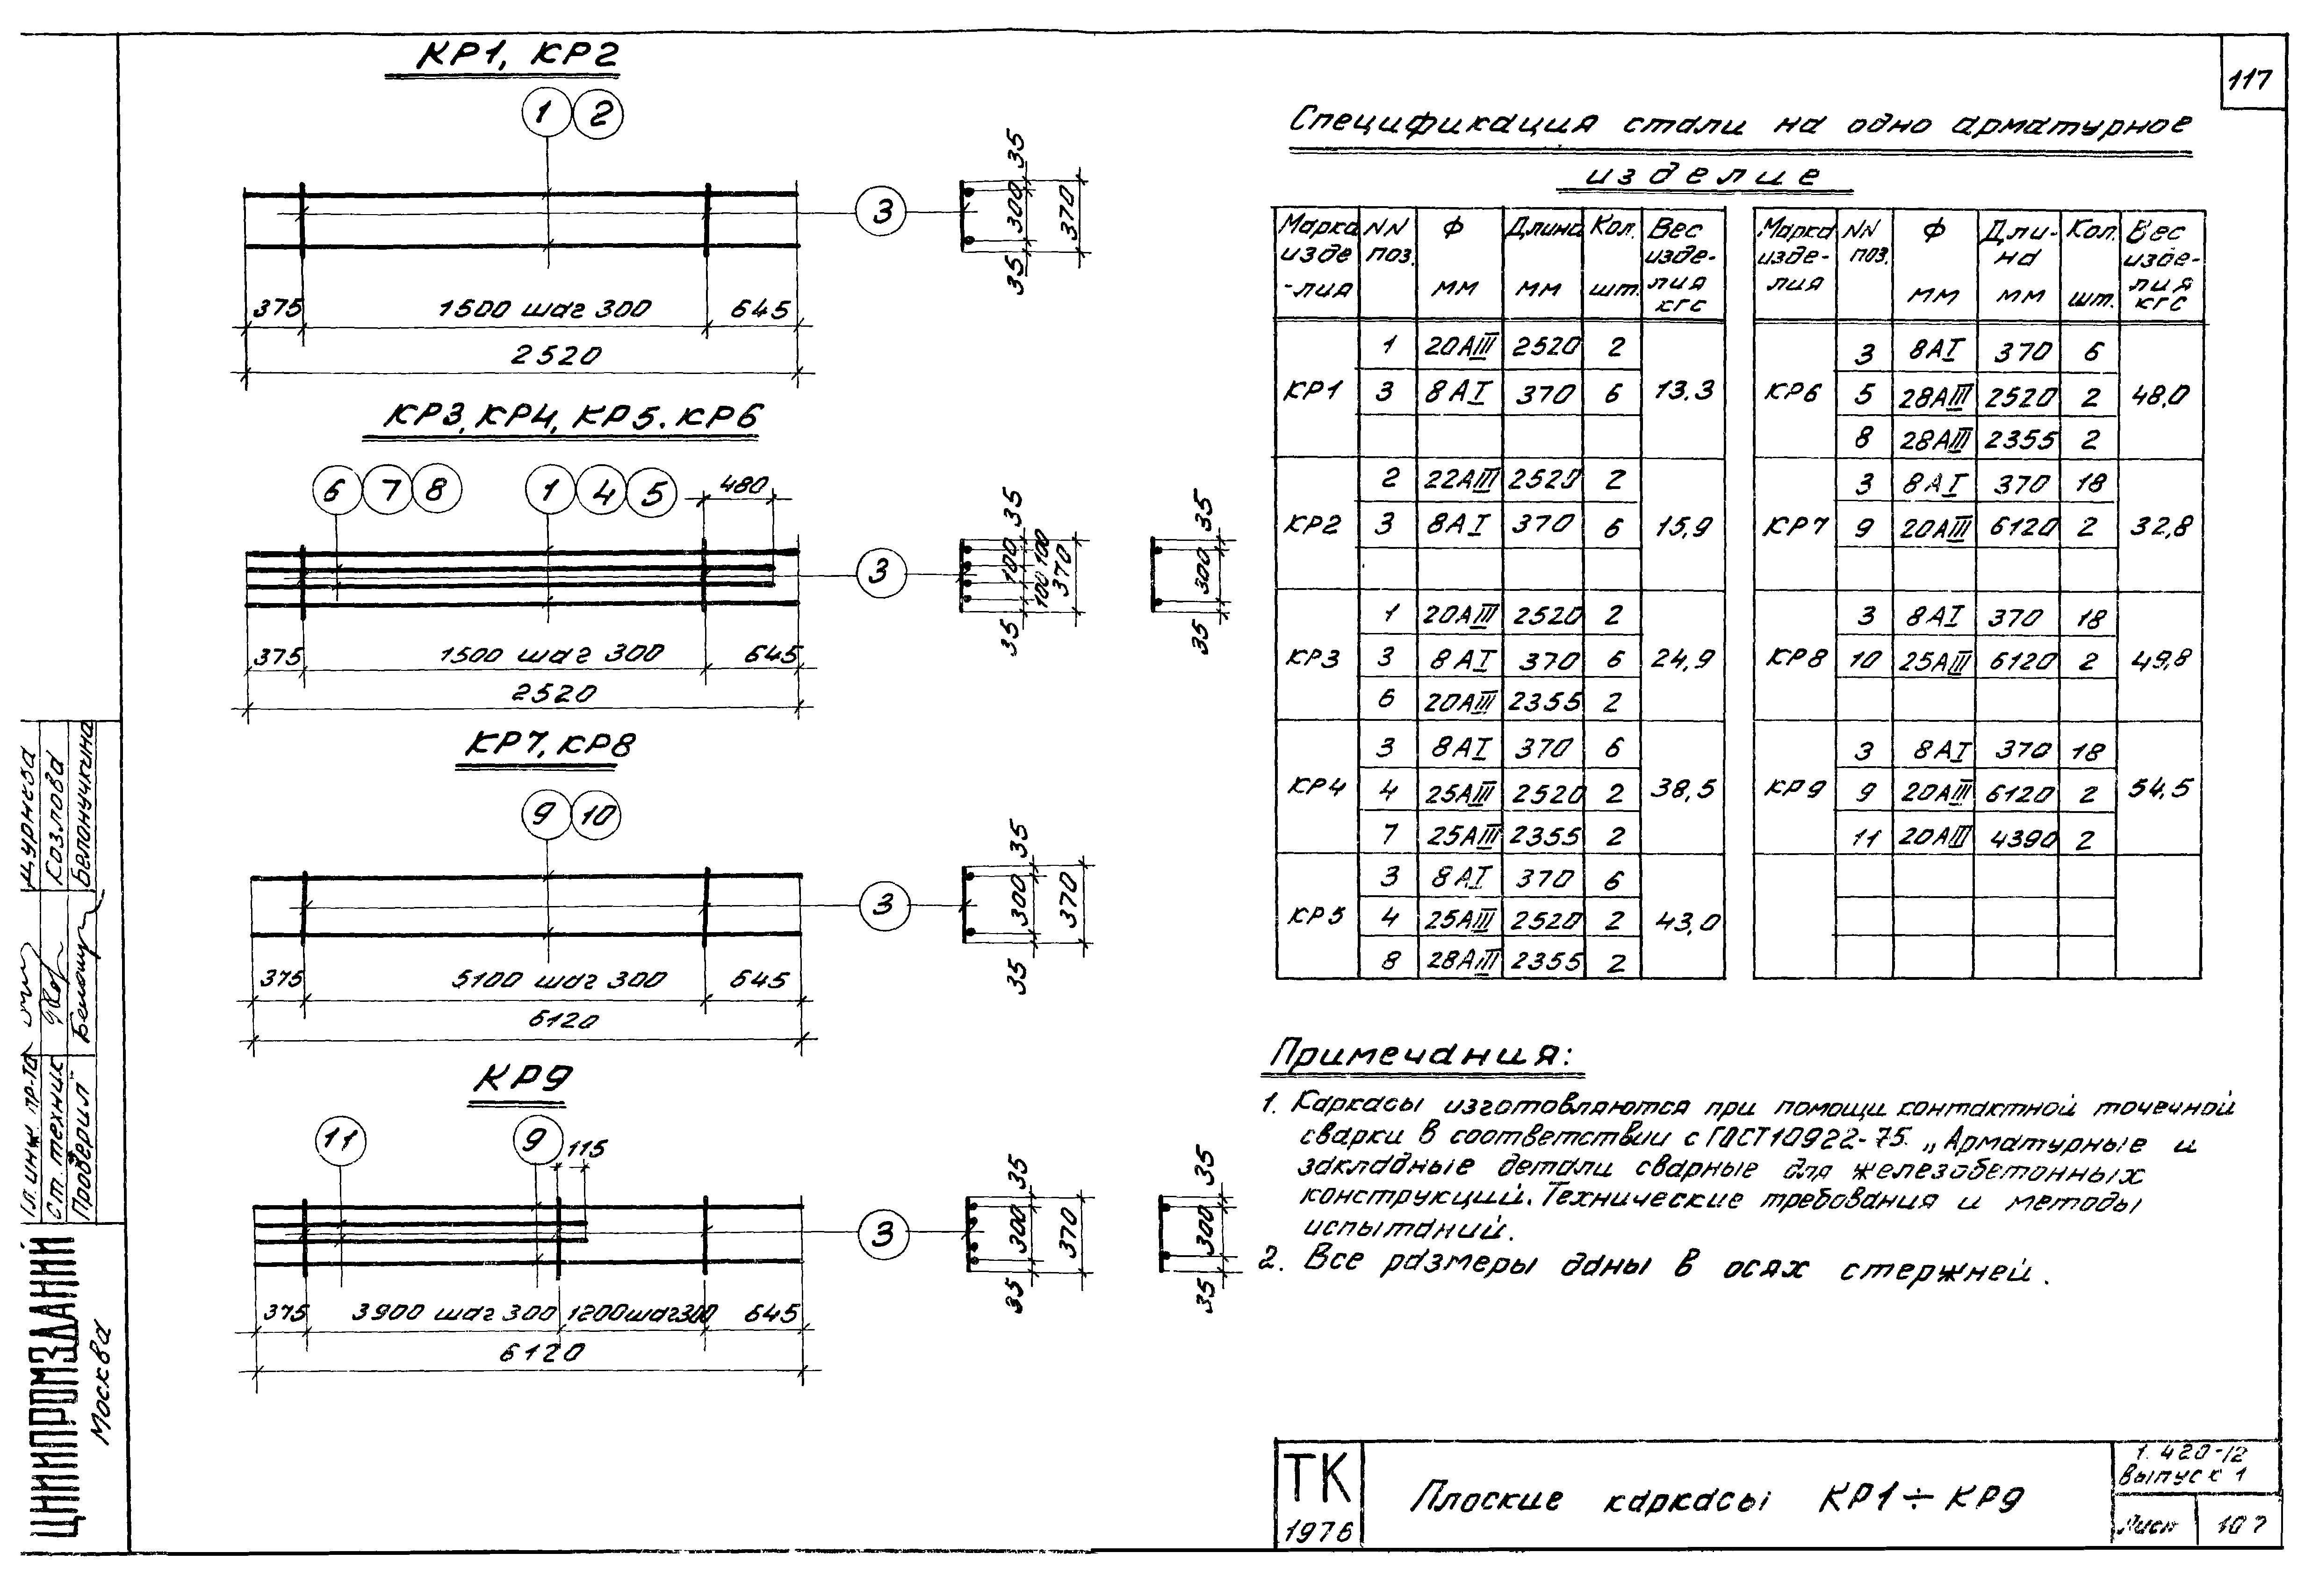 117
КР1, КР2
1 2
3
35 300 35 370
375 1500 шаг 300 645
2520
КР3, КР4, КР5. КР6
6 7 8 1 4 5 480
3
35 100 100 100 370 35
35 300 35
375 1500 шаг 300 645
2520
КР7, КР8
9 10
3
35 300 35 370
375 5100 шаг 300 645
6120
КР9
11 9 115
3
35 300 35 370
35 300 35
375 3900 шаг 300 1200 шаг 300 645
6120
Спецификация стали на одно арматурное
изделие
Марка изде-лия NN поз. Ф мм Длина мм Кол. шт. Вес изде-лия кгс
КР1 13.3
1 20АIII 2520 2
3 8АI 370 6
КР2 15,9
2 22АIII 2520 2
3 8АI 370 6
КР3 24,9
1 20АIII 2520 2
3 8АI 370 6
6 20АIII 2355 2
КР4 38,5
3 8АI 370 6
4 25АIII 2520 2
7 25АIII 2355 2
КР5 43,0
3 8АI 370 6
4 25АIII 2520 2
8 28АIII 2355 2
Марка изде-лия NN поз. Ф мм Дли-на мм Кол. шт. Вес изде-лия кгс
КР6 48,0
3 8АI 370 6
5 28АIII 2520 2
8 28АIII 2355 2
КР7 32,8
3 8АI 370 18
9 20АIII 6120 2
КР8 49,8
3 8АI 370 18
10 25АIII 6120 2
КР9 54,5
3 8АI 370 18
9 20АIII 6120 2
11 20АIII 4390 2
Примечания:
1. Каркасы изготовляются при помощи контактной точечной
сварки в соответствии с ГОСТ 10922-75. „Арматурные и
закладные детали сварные для железобетонных
конструкций. Технические требования и методы
испытаний.
2. Все размеры даны в осях стержней.
ТК
1976
Плоские каркасы КР1÷КР9
1.420-12
Выпуск 1
Лист 107
Гл. инж. пр-та
Ст. техник Козлова
Проверил Белонучкина
ЦНИИПРОМЗДАНИЙ
Москва